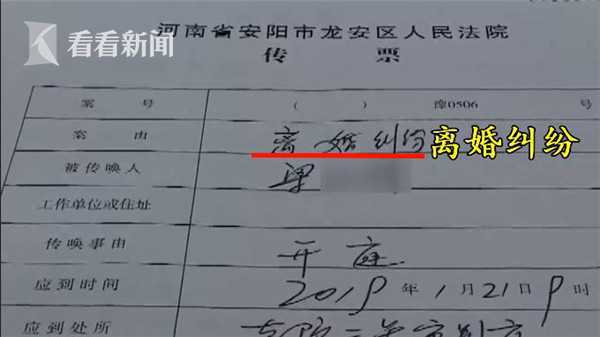 看看新闻
河南省安阳市龙安区人民法院
传 票
案 号 ( ) 豫0506 号
案 由 离婚纠纷 离婚纠纷
被传唤人 梁
工作单位或住址
传唤事由 开庭
应到时间 2019年1月21日9时
应到处所